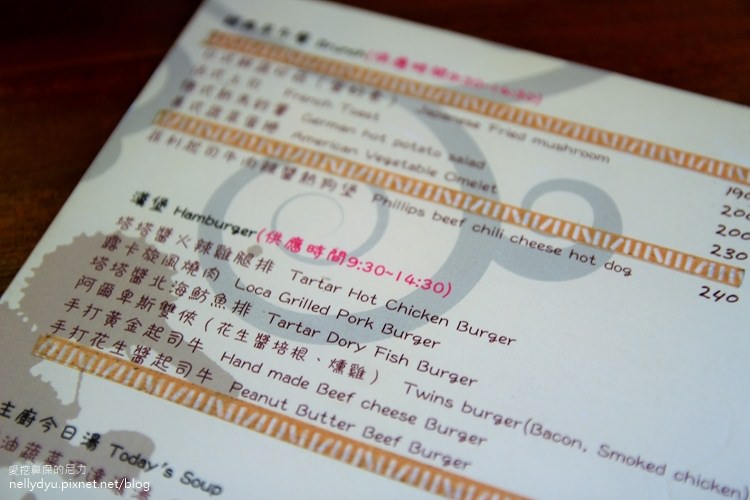 Brunch(供應時間9:30-14:30)
Japanese Fried mushroom 190
法式土司 French Toast
德式熱馬鈴薯 German hot potato salad 200
美式蔬菜蛋捲 American Vegetable Omelet 230
菲利起司牛肉辣醬熱狗堡 Phillips beef chili cheese hot dog 240
漢堡 Hamburger(供應時間9:30~14:30)
塔塔醬火辣雞腿排 Tartar Hot Chicken Burger
露卡旋風燒肉 Loca Grilled Pork Burger
塔塔醬北海魴魚排 Tartar Dory Fish Burger
阿爾卑斯雙俠（花生醬培根、燻雞） Twins burger(Bacon, Smoked chicken)
手打黃金起司牛 Hand made Beef cheese Burger
手打花生醬起司牛 Peanut Butter Beef Burger
主廚今日湯 Today's Soup
油蔬菜
愛挖鼻屎的尼力
nellydyu.pixnet.net/blog